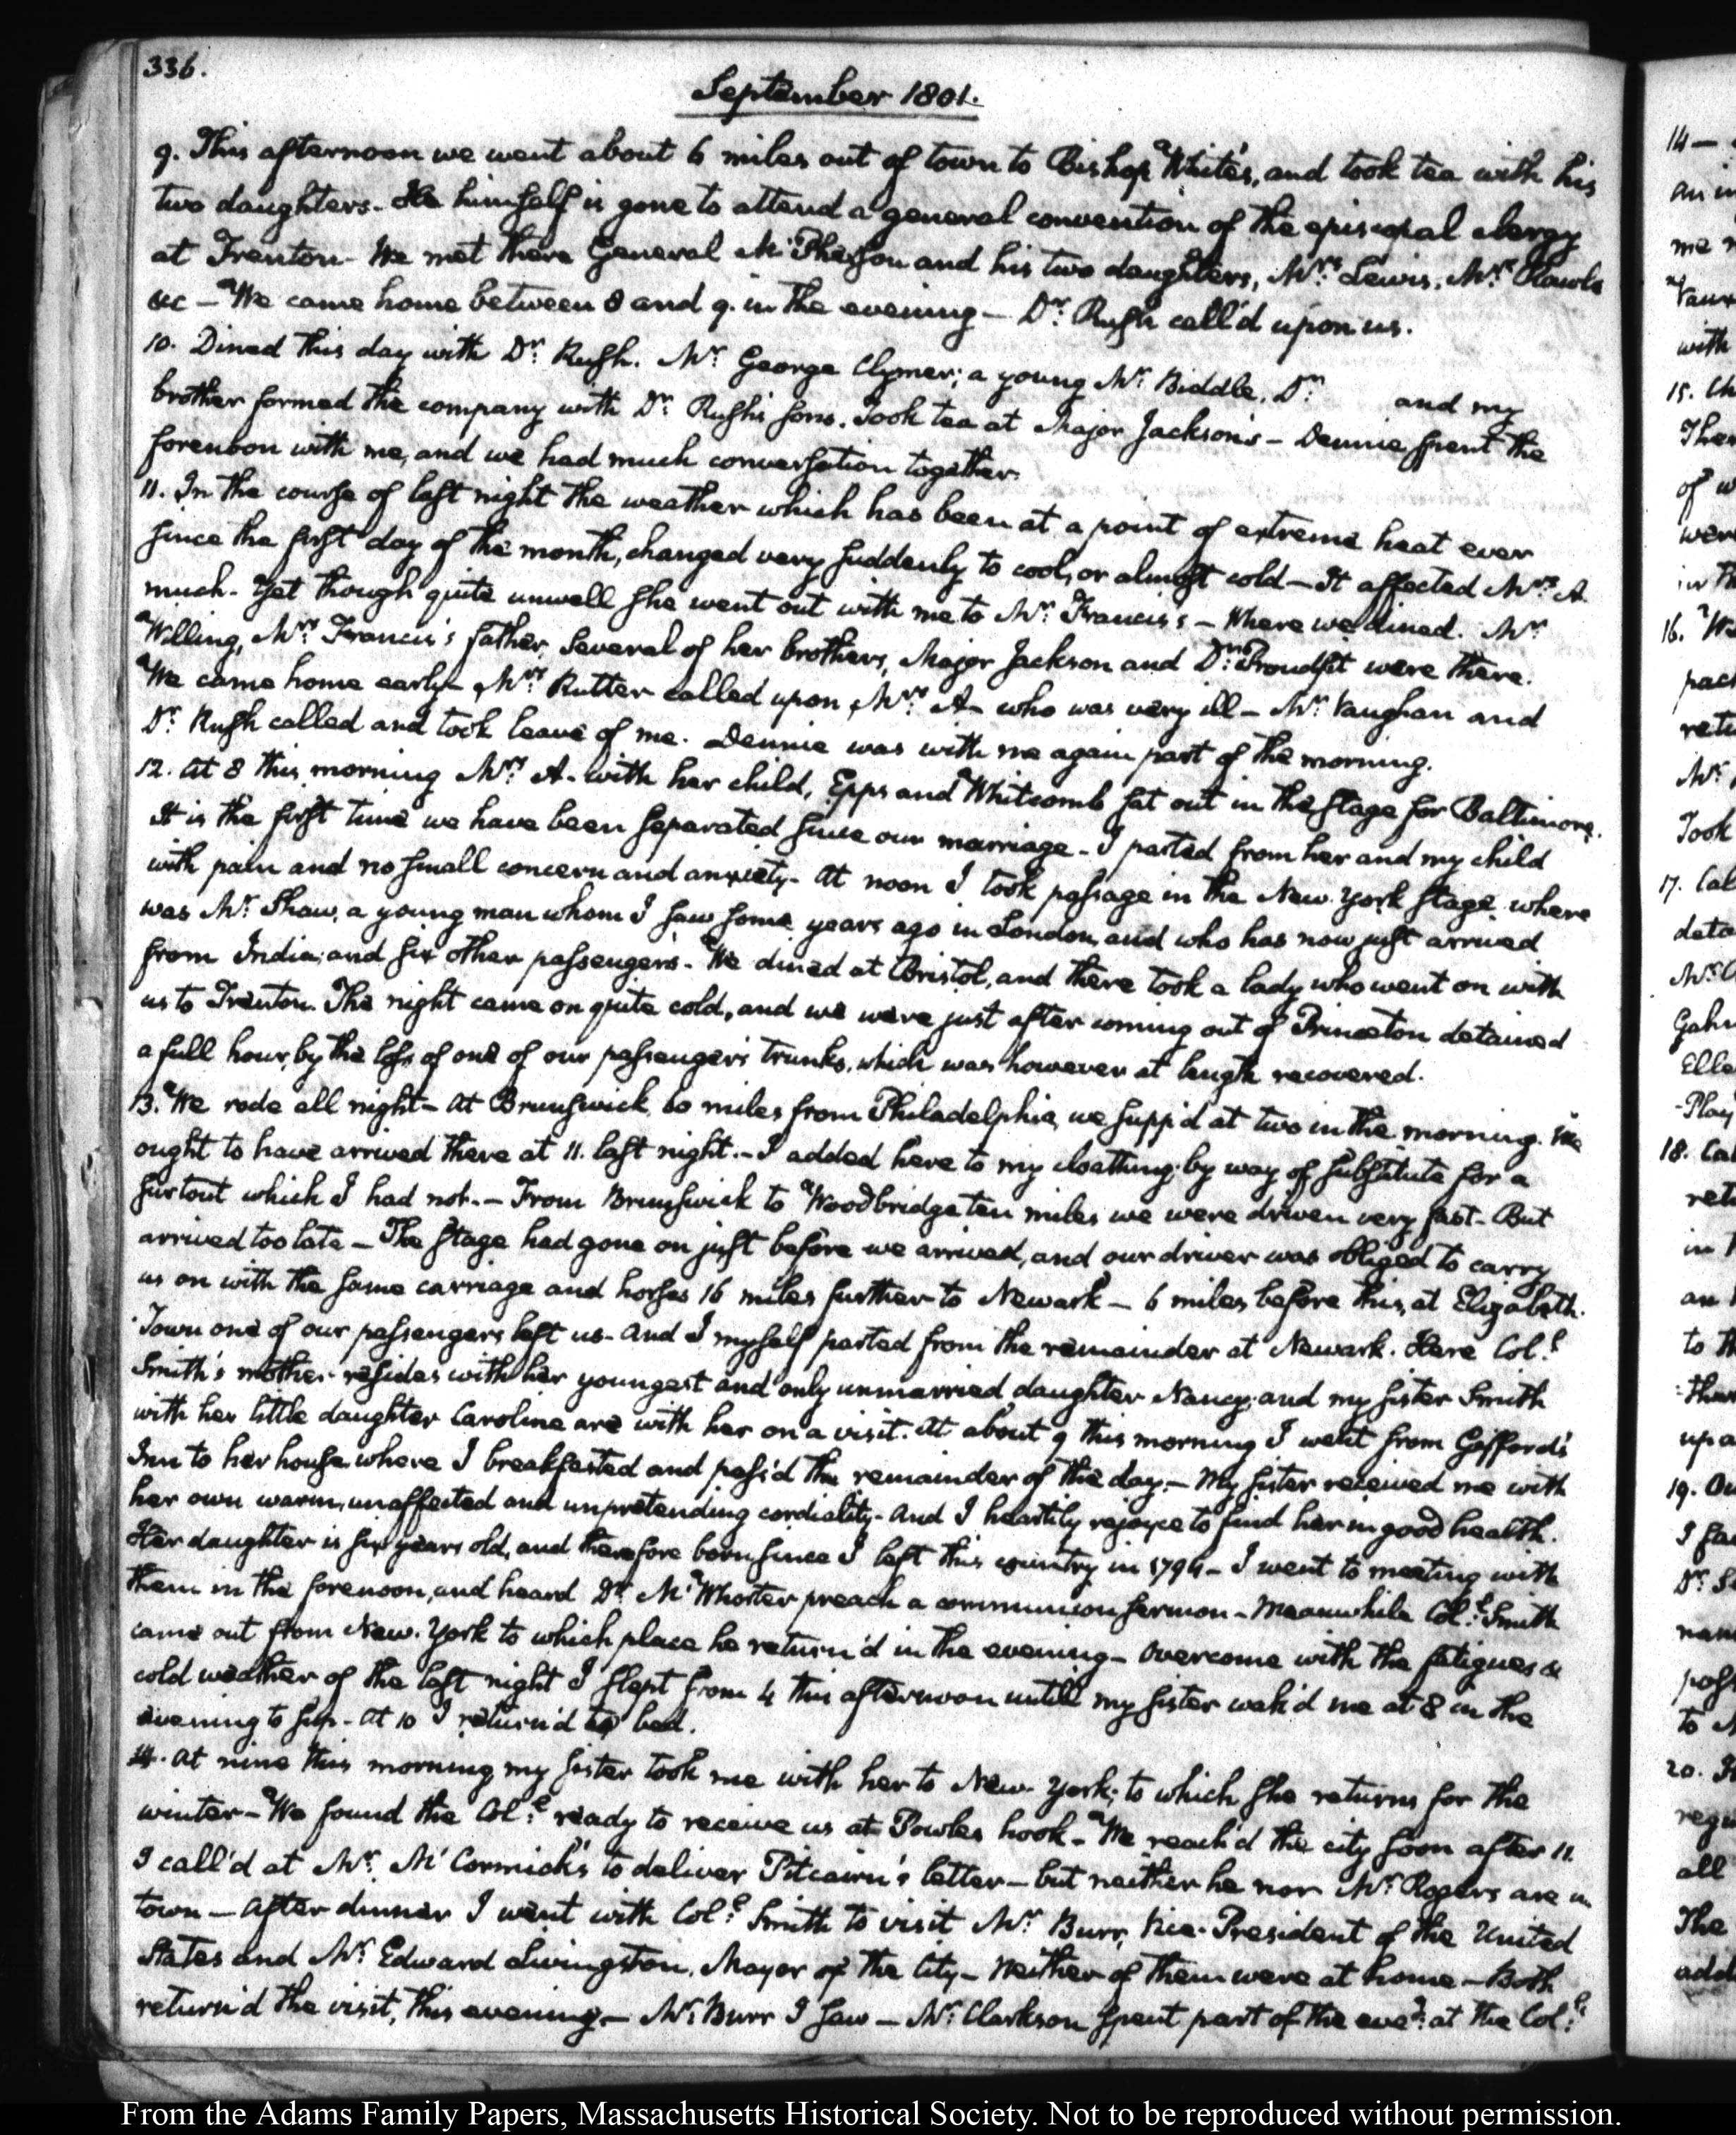 336.
September 1801.
9. This afternoon we went about 6 miles out of town to Bishop White's, and took tea with his
two daughters. He himself is gone to attend a general convention of the episcopal clergy
at Trenton. We met there General McPherson and his two daughters, Mrs. Lewis, Mrs. Rawle
&c — We came home between 8 and 9. in the evening — Dr. Rush call'd upon us.
10. Dined this day with Dr. Rush. Mr. George Clymer; a young Mr. Biddle, Dr. and my
brother formed the company with Dr. Rush's sons. Took tea at Major Jackson's — Dennie spent the
forenoon with me, and we had much conversation together.
11. In the course of last night the weather which has been at a point of extreme heat ever
since the first day of the month, changed very suddenly to cool, or almost cold — It affected Mrs. A.
much. Yet though quite unwell she went out with me to Mr. Francis's — Where we dined. Mr.
Willing, Mrs. Francis's father, several of her brothers, Major Jackson and Dr. Proudfit were there.
We came home early — Mrs. Rutter called upon Mrs. A — who was very ill — Mr. Vaughan and
Dr. Rush called and took leave of me. Dennie was with me again part of the morning.
12. At 8 this morning Mrs. A. with her child, Epps and Whitcomb sat out in the stage for Baltimore.
It is the first time we have been separated since our marriage — I parted from her and my child
with pain and no small concern and anxiety — At noon I took passage in the New York stage, where
was Mr. Shaw, a young man whom I saw some years ago in London, and who has now just arrived
from India; and six other passengers. We dined at Bristol, and there took a lady who went on with
us to Trenton. The night came on quite cold, and we were just after coming out of Princeton detained
a full hour, by the loss of one of our passenger's trunks, which was however at length recovered.
13. We rode all night — At Brunswick, 60 miles from Philadelphia, we supp'd at two in the morning. We
ought to have arrived there at 11. last night. — I added here to my cloathing by way of substitute for a
surtout which I had not. — From Brunswick to Woodbridge ten miles we were driven very fast — But
arrived too late — The stage had gone on just before we arrived, and our driver was obliged to carry
us on with the same carriage and horses 16 miles further to Newark — 6 miles before this, at Elizabeth
Town one of our passengers left us — And I myself parted from the remainder at Newark. Here Coll.
Smith's mother resides with her youngest and only unmarried daughter Nancy; and my sister Smith
with her little daughter Caroline are with her on a visit. At about 9 this morning I went from Gifford's
Inn to her house where I breakfasted and pass'd the remainder of the day. — My sister received me with
her own warm, unaffected and unpretending cordiality — And I heartily rejoyce to find her in good health.
Her daughter is six years old, and therefore born since I left this country in 1794 — I went to meeting with
them in the forenoon, and heard Dr. McWhorter preach a communion sermon — Meanwhile Coll. Smith
came out from New-York to which place he return'd in the evening — Overcome with the fatigues &
cold weather of the last night I slept from 4 this afternoon untill my sister wak'd me at 8 in the
evening to sup — At 10 I return'd to bed.
14. At nine this morning my sister took me with her to New-York; to which she returns for the
winter — We found the Coll. ready to receive us at Powles hook — We reach'd the city soon after 11.
I call'd at Mr. McCormick's to deliver Pitcairn's letter — but neither he nor Mr. Rogers are in
town — After dinner I went with Coll. Smith to visit Mr. Burr, Vice-President of the United
States and Mr. Edward Livingston, Mayor of the City — Neither of them were at home — Both
return'd the visit, this evening — Mr. Burr I saw — Mr. Clarkson spent part of the eveg. at the Coll.
14 —
15.
16.
17.
18.
19.
20.
From the Adams Family Papers, Massachusetts Historical Society. Not to be reproduced without permission.